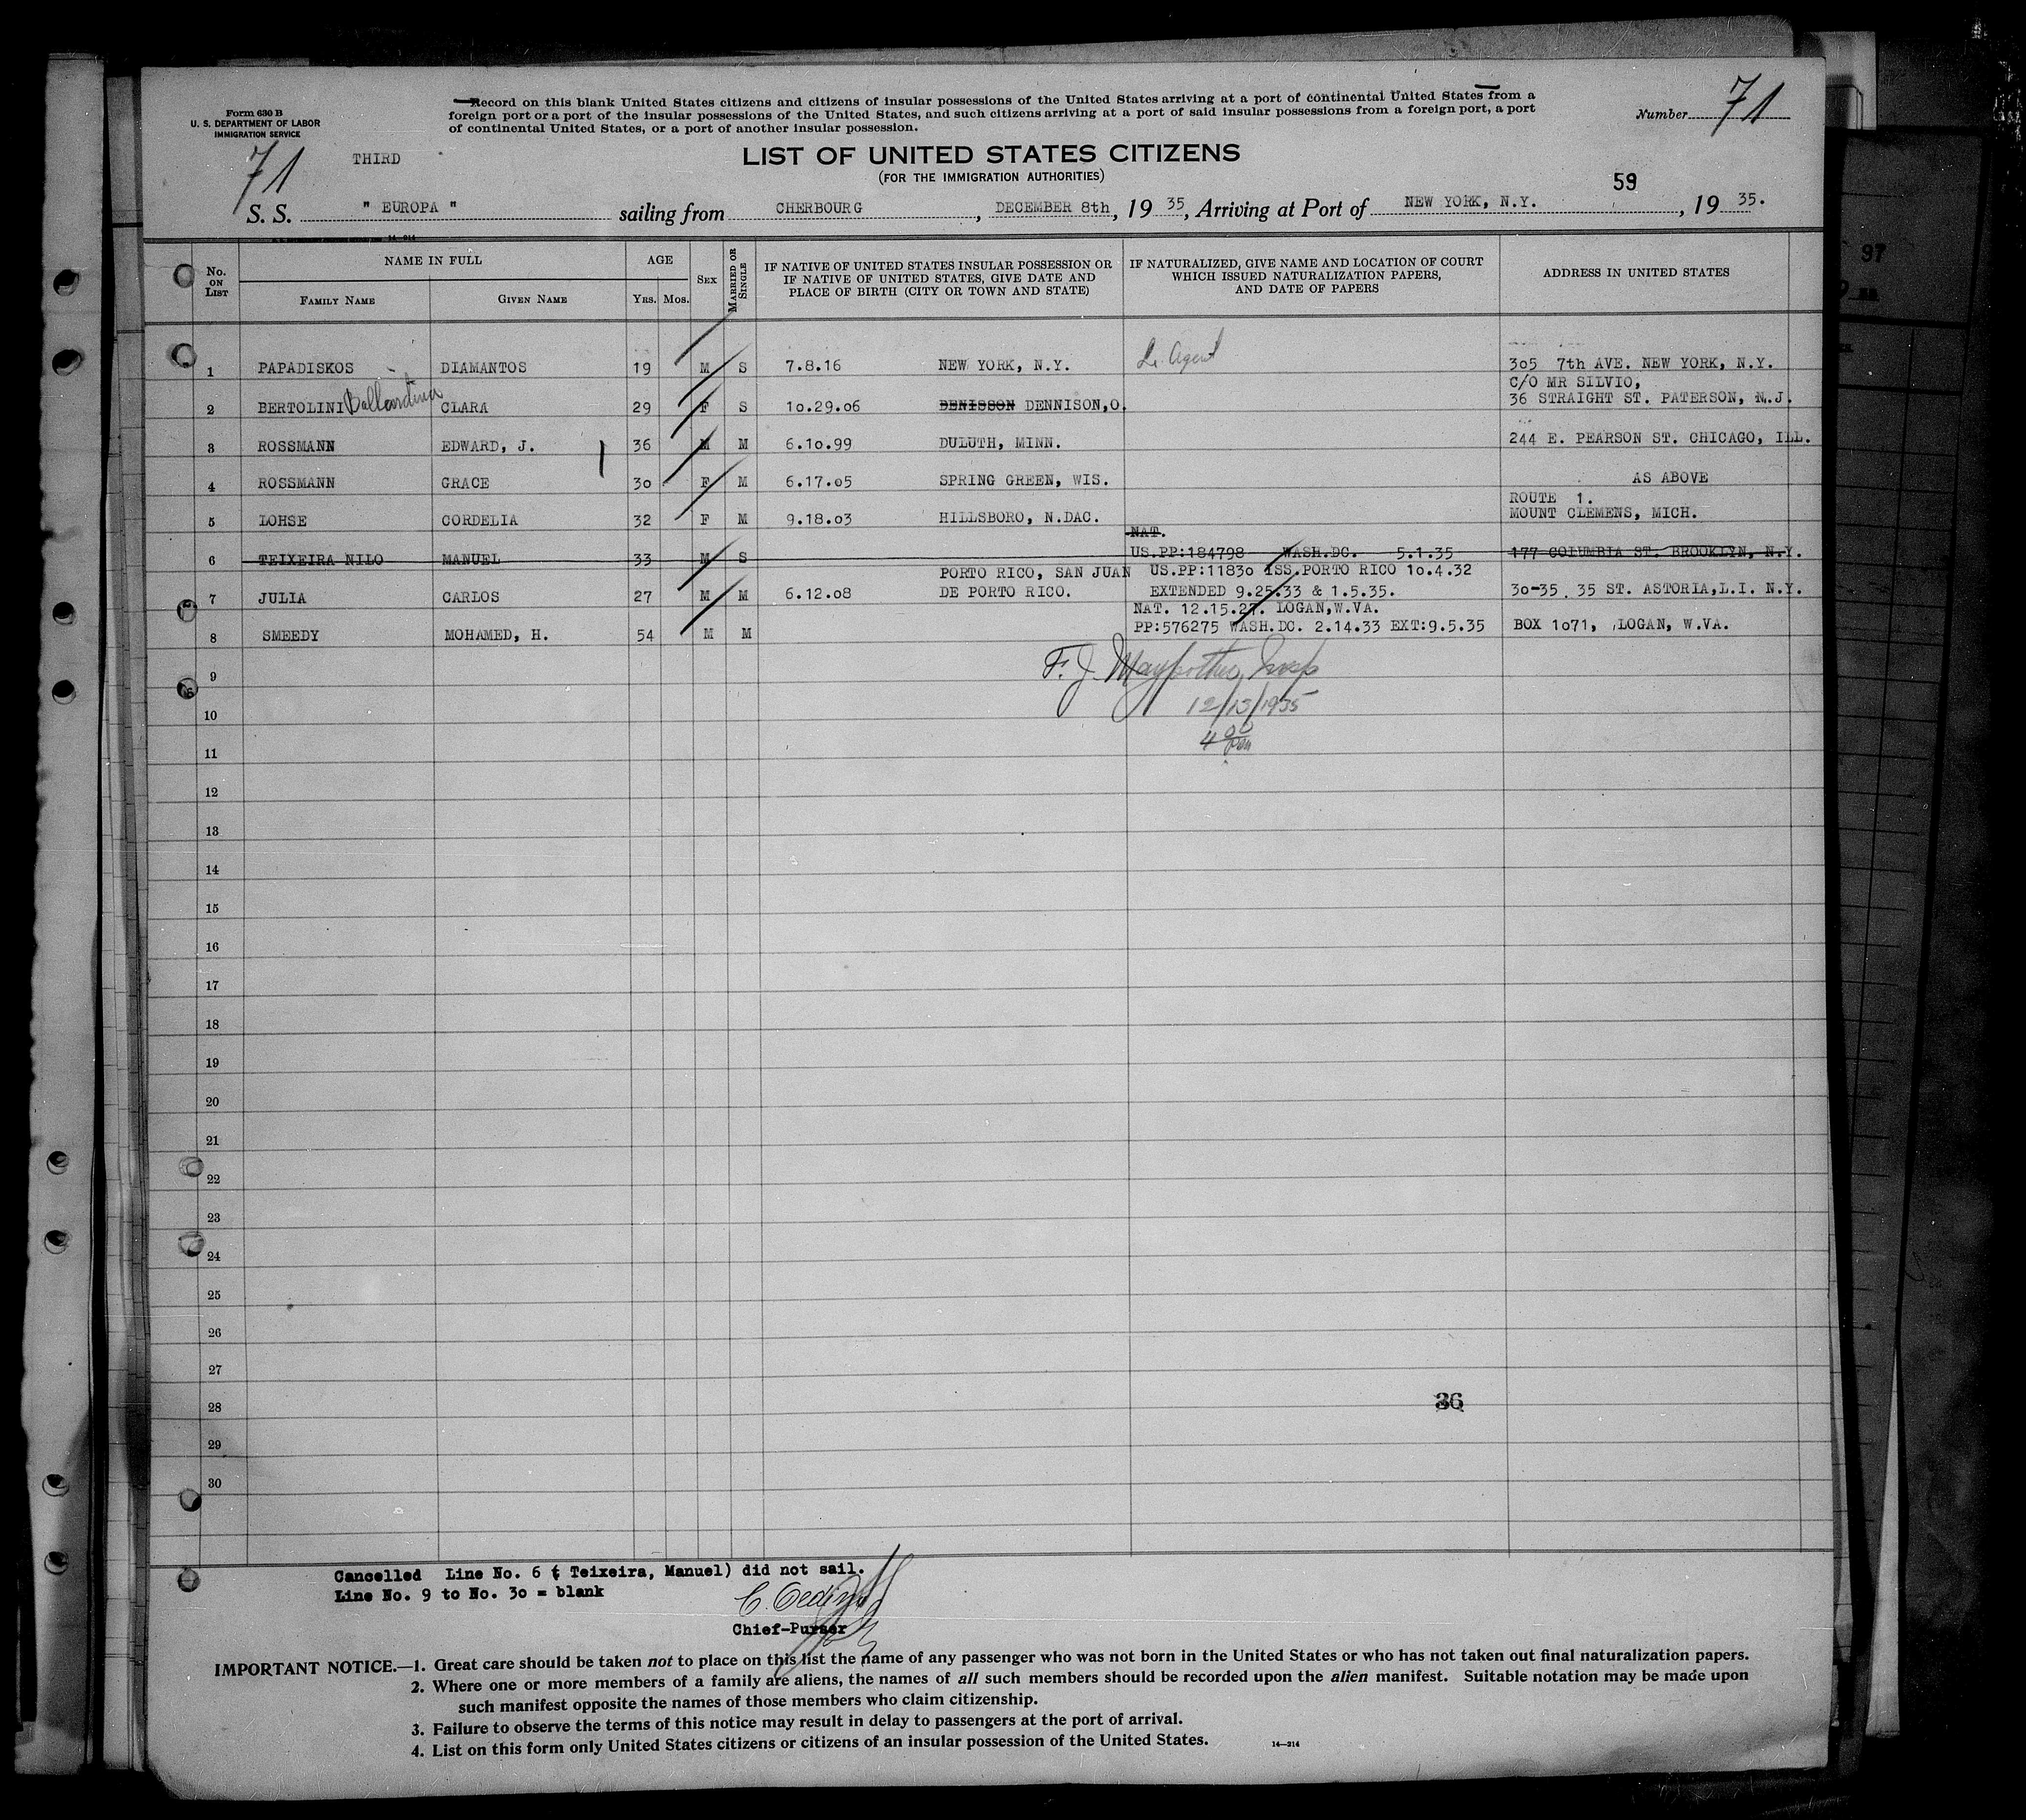 Form 630 B
U. S. DEPARTMENT OF LABOR
IMMIGRATION SERVICE
Record on this blank United States citizens and citizens of insular possessions of the United States arriving at a port of continental United States from a
foreign port or a port of the insular possessions of the United States, and such citizens arriving at a port of said insular possessions from a foreign port, a port
of continental United States, or a port of another insular possession.
Number 71
71 THIRD
LIST OF UNITED STATES CITIZENS
(FOR THE IMMIGRATION AUTHORITIES)
59
S. S. " EUROPA " sailing from CHERBOURG, DECEMBER 8th, 19 35, Arriving at Port of NEW YORK, N.Y., 19 35.
No. ON LIST
NAME IN FULL
FAMILY NAME
GIVEN NAME
AGE
YRS. MOS.
SEX
MARRIED OR SINGLE
IF NATIVE OF UNITED STATES INSULAR POSSESSION OR
IF NATIVE OF UNITED STATES, GIVE DATE AND
PLACE OF BIRTH (CITY OR TOWN AND STATE)
IF NATURALIZED, GIVE NAME AND LOCATION OF COURT
WHICH ISSUED NATURALIZATION PAPERS,
AND DATE OF PAPERS
ADDRESS IN UNITED STATES
1 PAPADISKOS DIAMANTOS 19 M S 7.8.16 NEW YORK, N.Y. Agent 305 7th AVE. NEW YORK, N.Y.
C/O MR SILVIO,
2 BERTOLINI CLARA 29 F S 10.29.06 DENISSON DENNISON,O. 36 STRAIGHT ST. PATERSON, N.J.
3 ROSSMANN EDWARD, J. 36 M M 6.10.99 DULUTH, MINN. 244 E. PEARSON ST. CHICAGO, ILL.
4 ROSSMANN GRACE 30 F M 6.17.05 SPRING GREEN, WIS. AS ABOVE
ROUTE 1.
5 LOHSE CORDELIA 32 F M 9.18.03 HILLSBORO, N.DAC. MOUNT CLEMENS, MICH.
NAT.
6 TEIXEIRA NILO MANUEL 33 M S US.PP:184798 WASH.DC. 5.1.35 177 COLUMBIA ST. BROOKLYN, N.Y.
PORTO RICO, SAN JUAN US.PP:11830 ISS.PORTO RICO 10.4.32
7 JULIA CARLOS 27 M M 6.12.08 DE PORTO RICO. EXTENDED 9.25.33 & 1.5.35. 30-35. 35 ST. ASTORIA,L.I. N.Y.
NAT. 12.15.27. LOGAN,W.VA.
8 SMEEDY MOHAMED, H. 54 M M PP:576275 WASH.DC. 2.14.33 EXT:9.5.35 BOX 1071, LOGAN, W.VA.
9
F. J. Insp
10
12/13/1935
11
4 00 pm
12
13
14
15
16
17
18
19
20
21
22
23
24
25
26
27
28
36
29
30
Cancelled Line No. 6 ( Teixeira, Manuel) did not sail.
Line No. 9 to No. 30 = blank
Chief-Purser
IMPORTANT NOTICE.—1. Great care should be taken not to place on this list the name of any passenger who was not born in the United States or who has not taken out final naturalization papers.
2. Where one or more members of a family are aliens, the names of all such members should be recorded upon the alien manifest. Suitable notation may be made upon
such manifest opposite the names of those members who claim citizenship.
3. Failure to observe the terms of this notice may result in delay to passengers at the port of arrival.
4. List on this form only United States citizens or citizens of an insular possession of the United States.
14—214
97